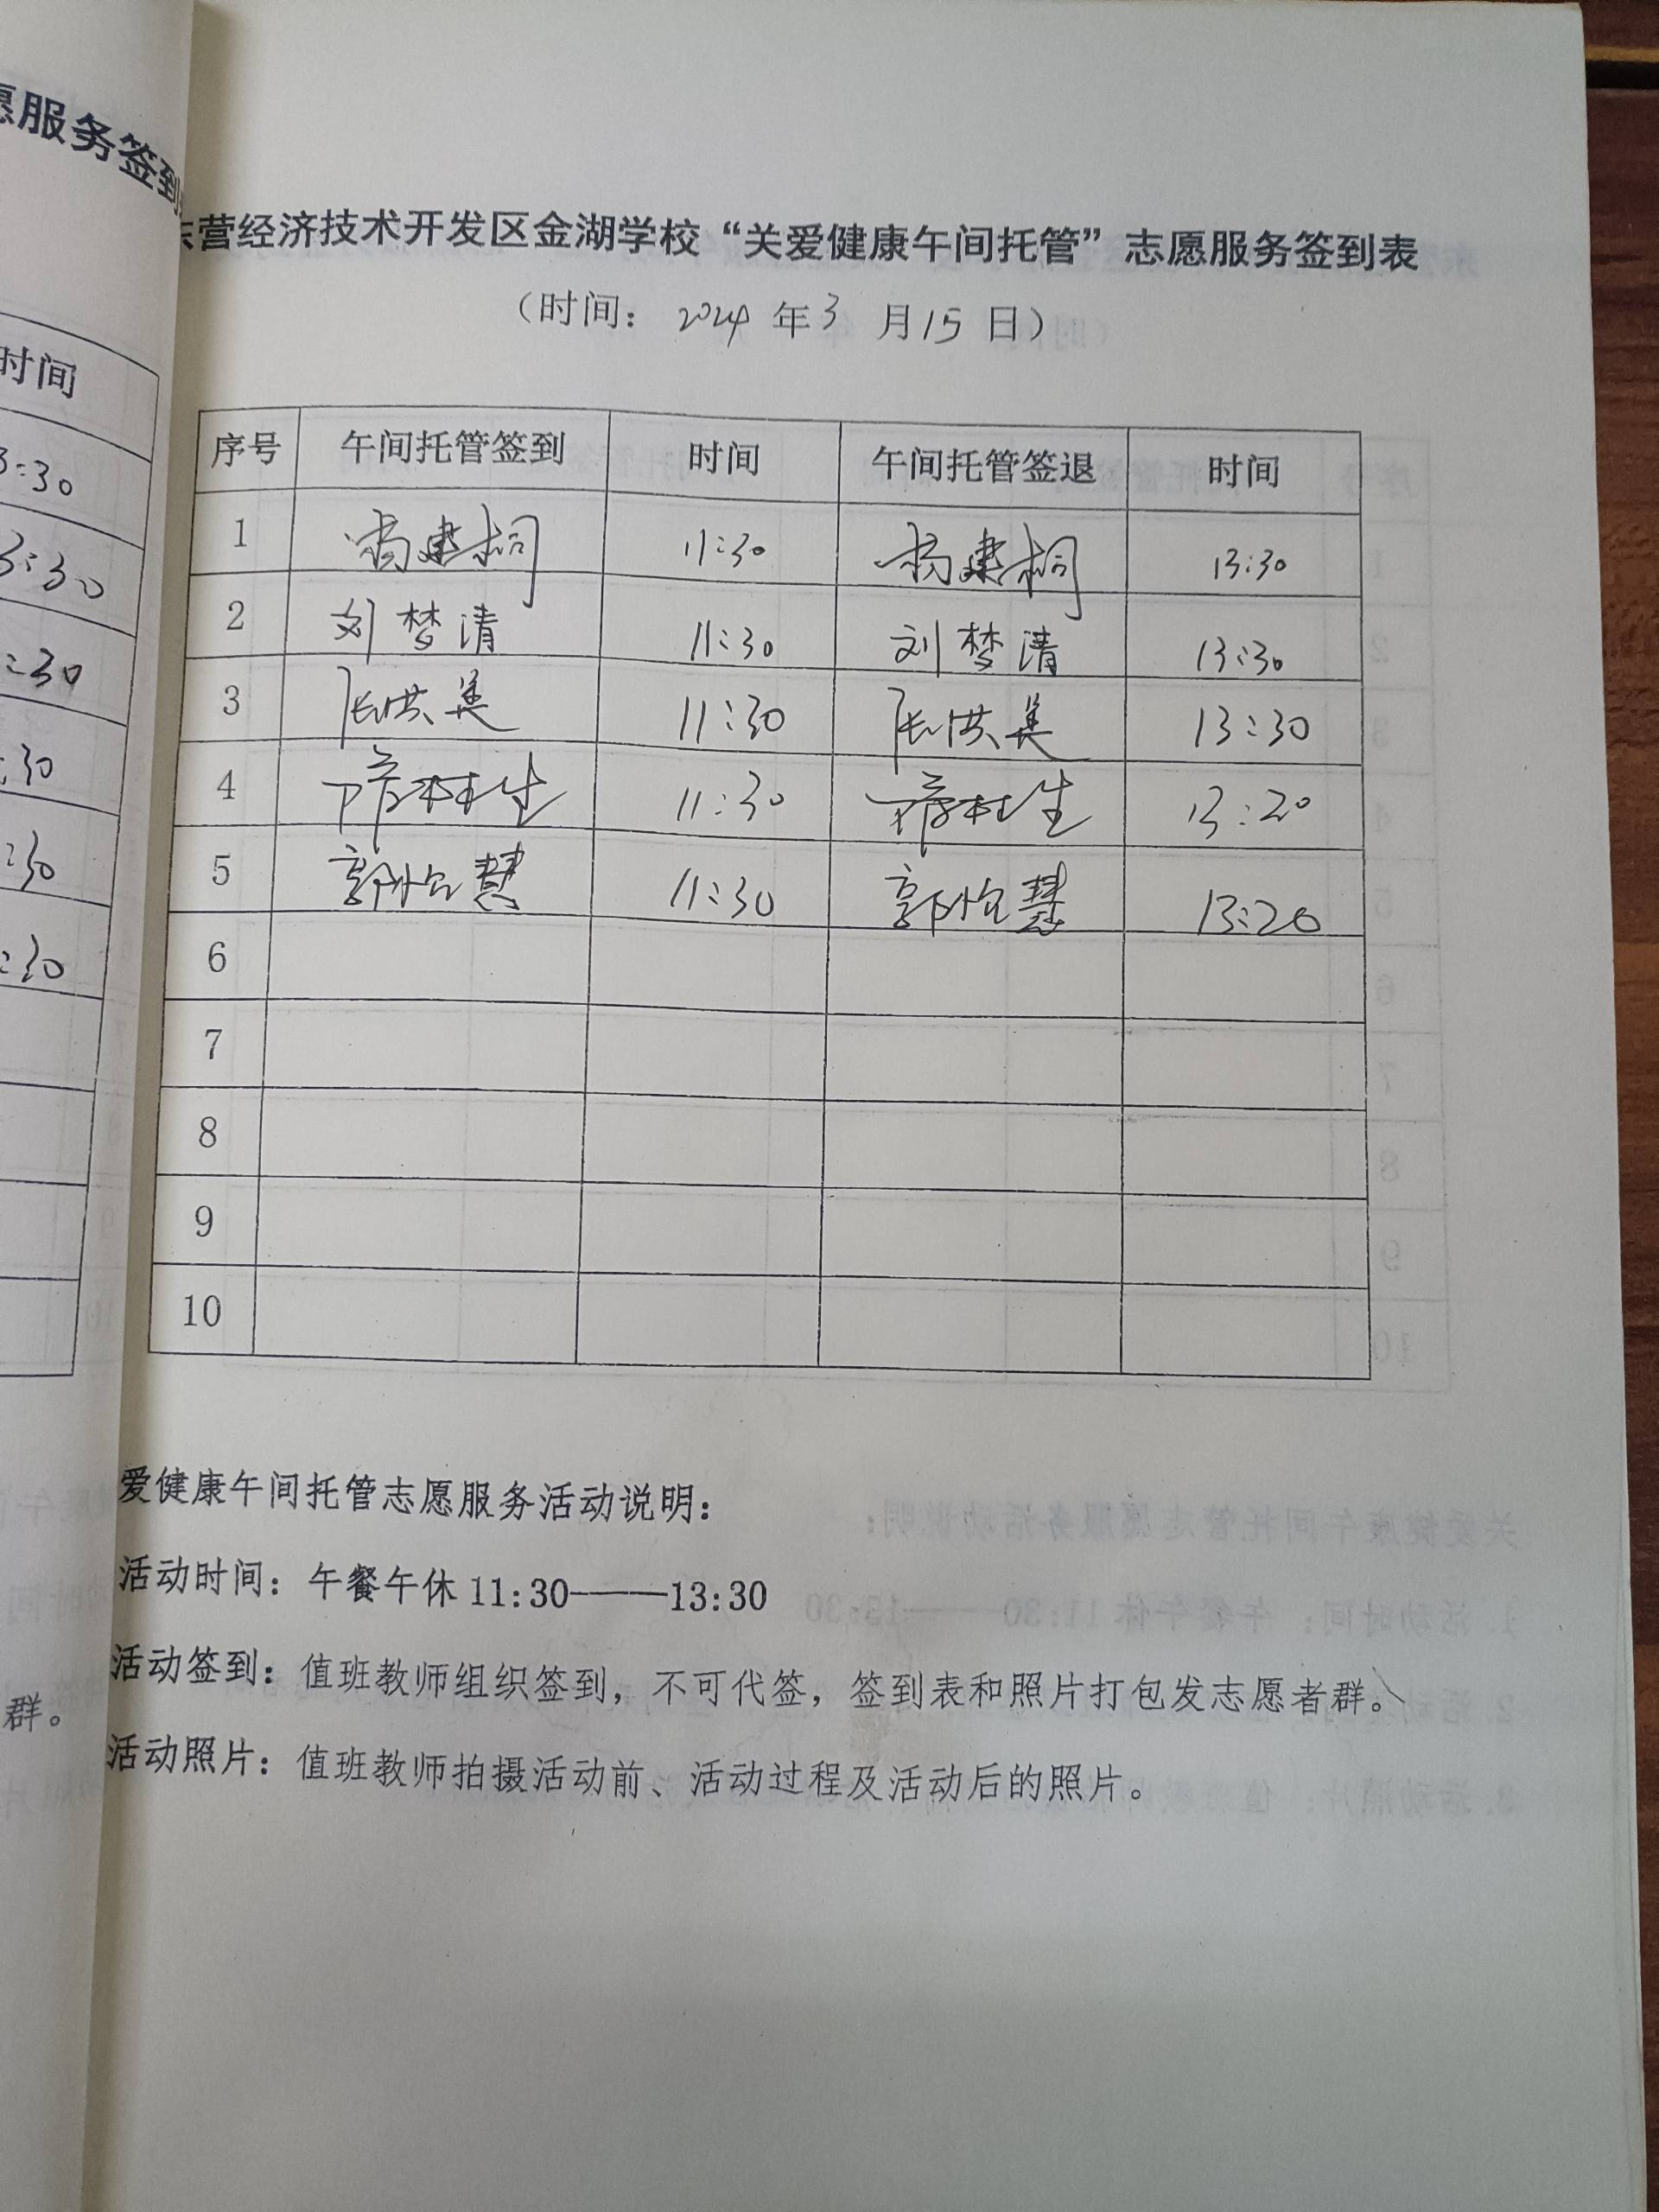 愿服务签到
时间
3:30
3:30
:30
:30
:30
:30
群。
东营经济技术开发区金湖学校“关爱健康午间托管”志愿服务签到表
（时间： 2024 年 3 月 15 日）
序号 午间托管签到 时间 午间托管签退 时间
1 杨建桐 11:30 杨建桐 13:30
2 刘梦清 11:30 刘梦清 13:30
3 张洪美 11:30 张洪美 13:30
4 11:30 13:20
5 郭怡慧 11:30 郭怡慧 13:20
6
7
8
9
10
爱健康午间托管志愿服务活动说明：
活动时间：午餐午休 11:30———13:30
活动签到：值班教师组织签到，不可代签，签到表和照片打包发志愿者群。
活动照片：值班教师拍摄活动前、活动过程及活动后的照片。